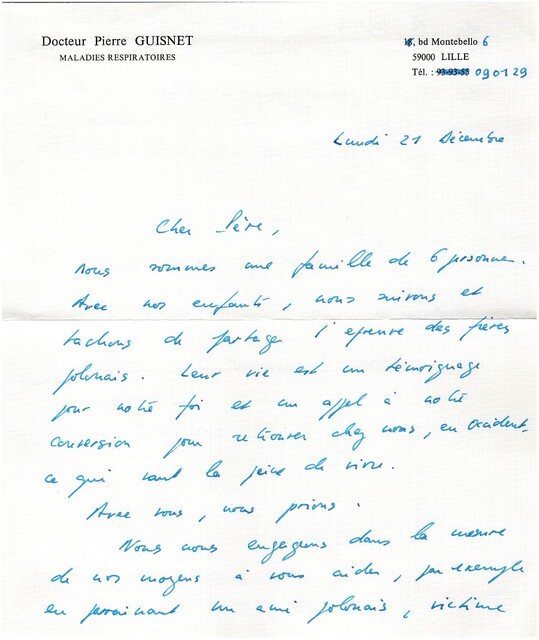 Docteur Pierre GUISNET
MALADIES RESPIRATOIRES
bd Montebello 6
59000 LILLE
Tél. : 93-93-55 090129
Lundi 21 Décembre
Cher Père,
Nous sommes une famille de 6 personnes.
Avec nos enfants, nous suivons et
tachons de partager l'epreuve des frères
polonais. Leur vie est un témoignage
pour notre foi et un appel à notre
conversion pour retrouver chez nous, en Occident,
ce qui vaut la peine de vivre.
Avec vous, nous prions.
Nous nous engageons dans la mesure
de nos moyens à vous aider, par exemple
en parainant un ami polonais, victime